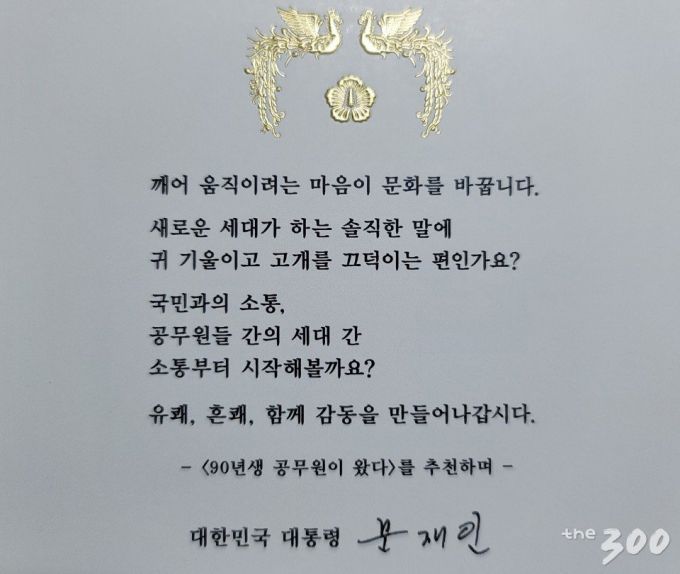 깨어 움직이려는 마음이 문화를 바꿉니다.
새로운 세대가 하는 솔직한 말에
귀 기울이고 고개를 끄덕이는 편인가요?
국민과의 소통,
공무원들 간의 세대 간
소통부터 시작해볼까요?
유쾌, 흔쾌, 함께 감동을 만들어나갑시다.
- <90년생 공무원이 왔다>를 추천하며 -
대한민국 대통령 문재인
the 300